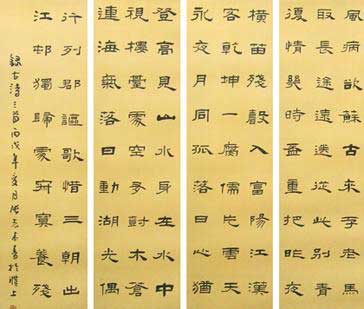 風病欲蘇古來存老馬
取長途遠送從此別青
復情幾時盃重把昨夜
橫笛殘聲入富陽江漢
客乾坤一腐儒片雲天
永夜月同孤落日心猶
登高見山水身在水中
視樓臺處空多樹木蒼
連海氣落日動湖光偶
行列郡謳歌惜三朝出
江邨獨歸處寂寞養殘
錄古詩三首丙戌年夏月張天書於上